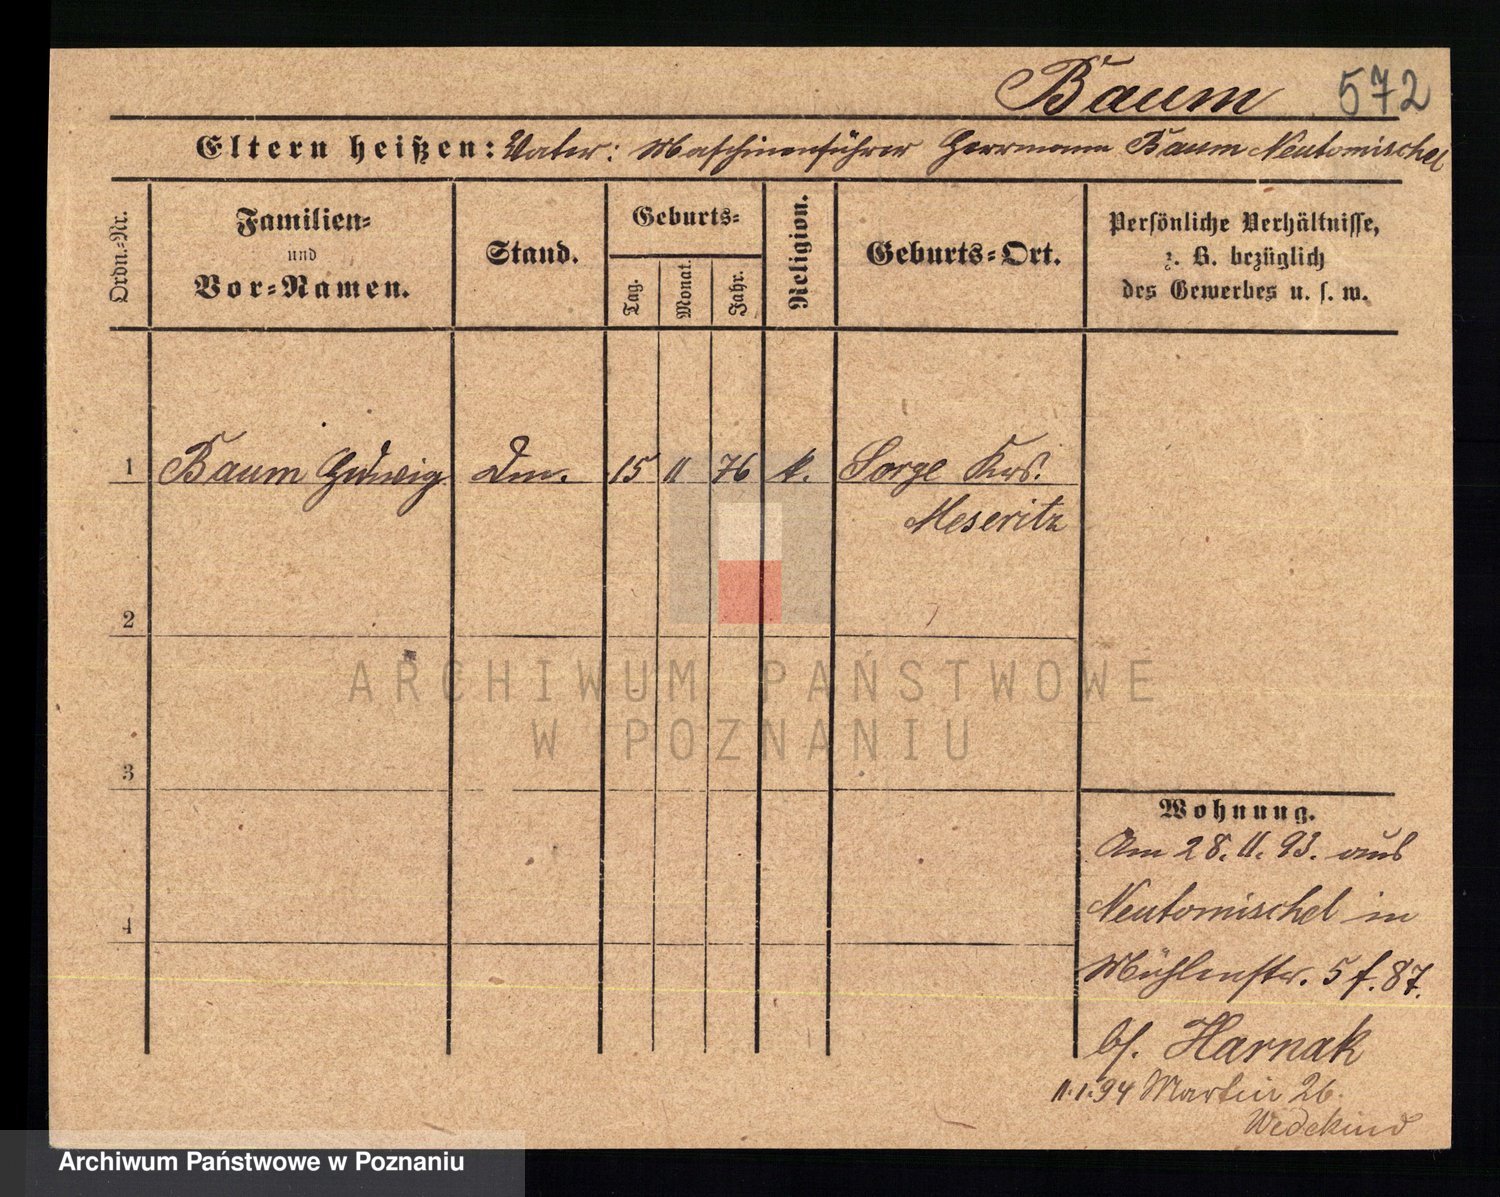 Baum 572
Eltern heißen: Vater: Maschinenführer Herrmann Baum Neutomischel
Ordn.-Nr.
Familien-
und
Vor-Namen.
Stand.
Geburts-
Tag.
Monat.
Jahr.
Religion.
Geburts-Ort.
Persönliche Verhältnisse,
z. B. bezüglich
des Gewerbes u. s. w.
1 Baum Hedwig Dm. 15 11 76 k. Sorge Krs.
Meseritz
2
3
4
ARCHIWUM PAŃSTWOWE
W POZNANIU
Wohnung.
Am 28. 11. 93. aus
Neutomischel in
Mühlenstr. 5 f. 87.
bf. Harnak
11.1.94 Martin 26.
Wedekind
Archiwum Państwowe w Poznaniu